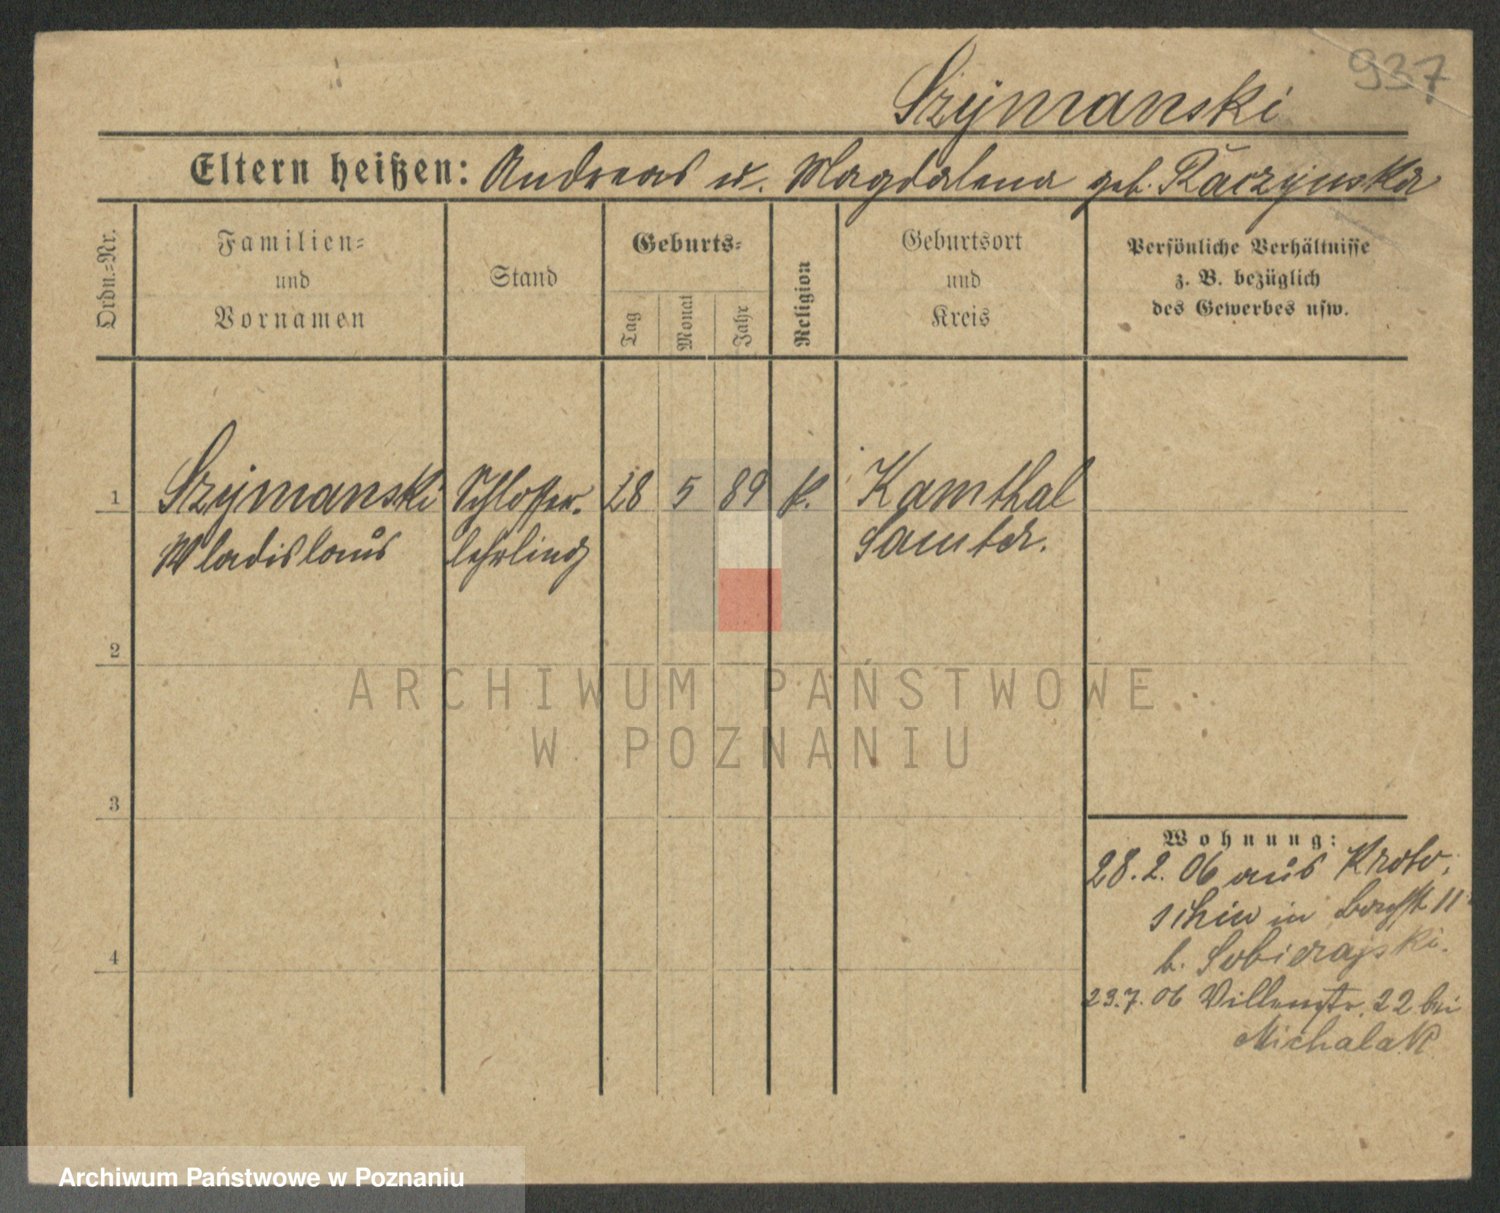 937
Szymanski
Eltern heißen: Andreas u. Magdalena geb. Raczynska
Ordn.-Nr.
Familien-
und
Vornamen
Stand
Geburts-
Tag
Monat
Jahr
Religion
Geburtsort
und
Kreis
Persönliche Verhältnisse
z. B. bezüglich
des Gewerbes usw.
1 Szymanski Schlosser- 28 5 89 k. Kamthal
Wladislaus lehrling Samter.
2
3
4
Wohnung:
28.2.06 aus Kroto-
schin in 11
b. Sobierajski.
23.7.06 Villenstr. 22 bei
Michalak
ARCHIWUM PAŃSTWOWE
W POZNANIU
Archiwum Państwowe w Poznaniu